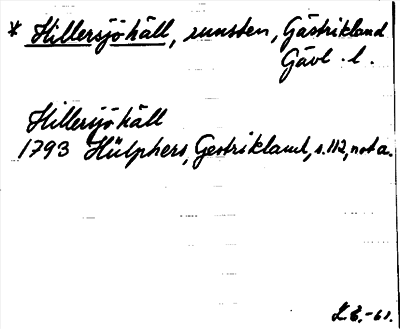 * Hillersjöhäll, runsten, Gästrikland
Gävl. l.
Hillersjöhäll
1793 Hülphers, Gestrikland, s. 112, not a.
L.E.-61.